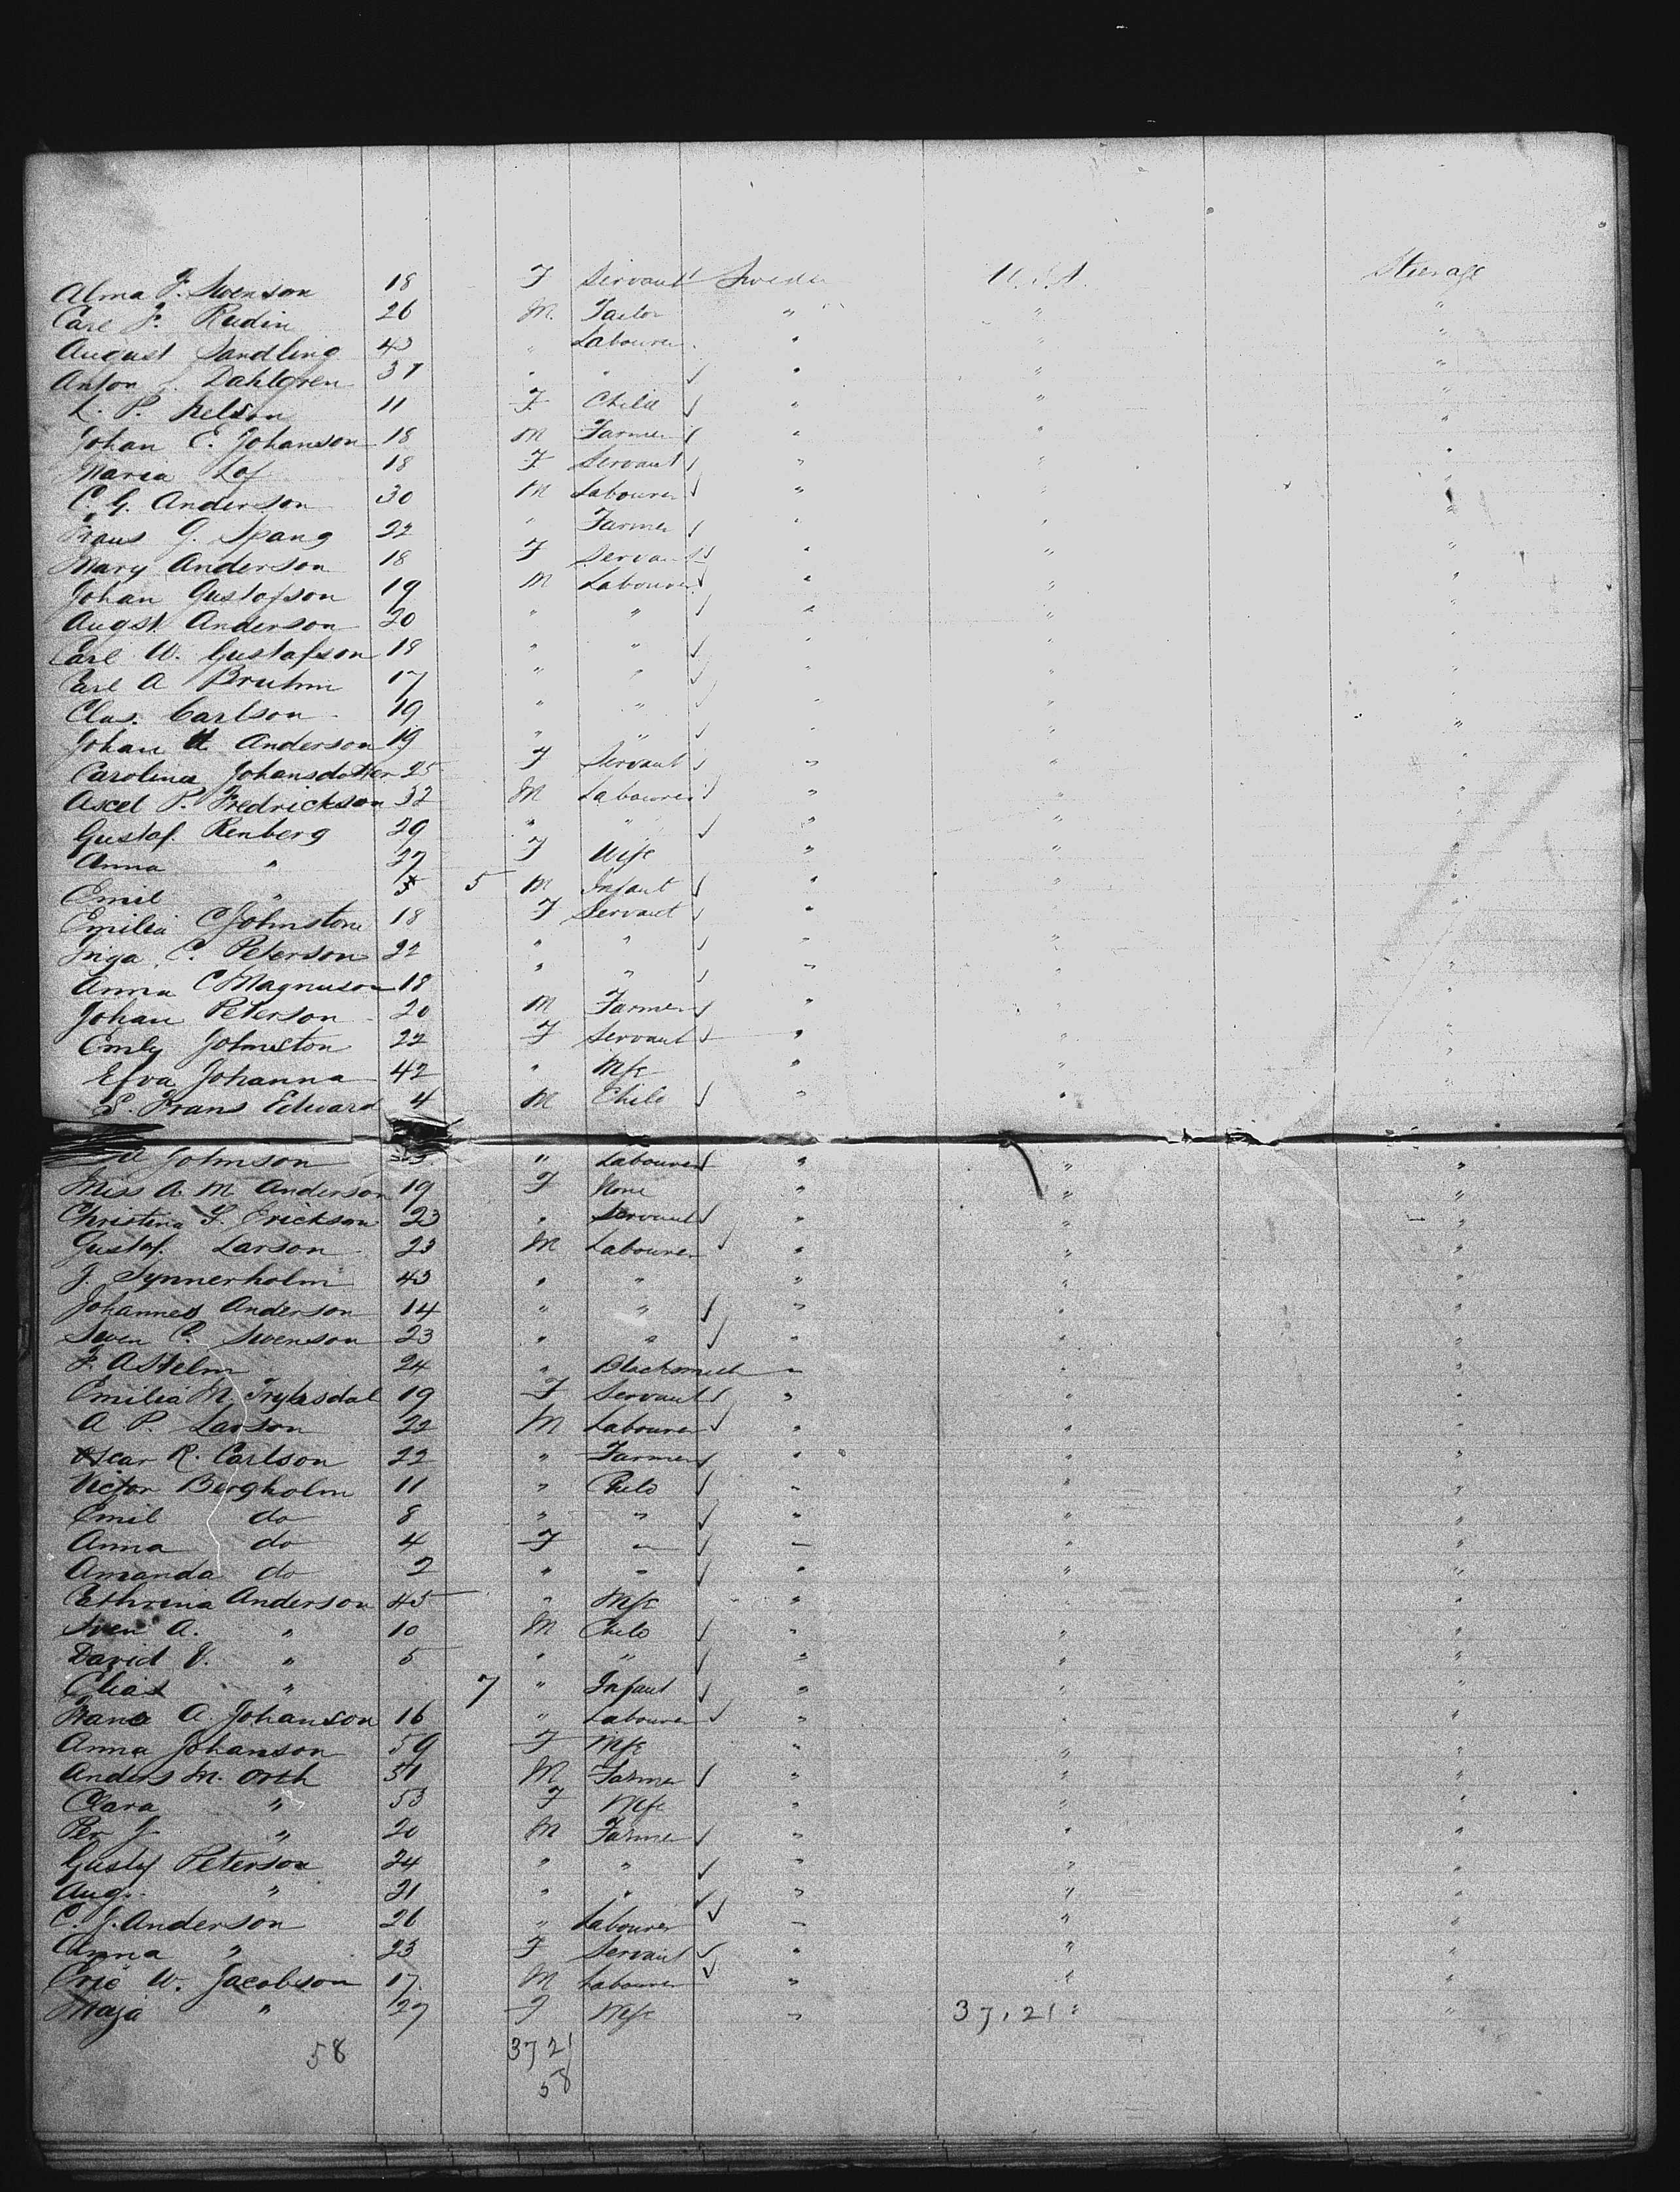 Alma F. Swenson 18 F Servant Sweden U.S.A. Steerage
Carl F. Rudin 26 M. Tailor " " "
August Sandling 43 " Labourer " " "
Anton J. Dahlgren 37 " " " " "
L. P. Nelson 11 F. Child " " "
Johan E. Johanson 18 M Farmer " " "
Maria Lof 18 F Servant " " "
C. G. Anderson 30 M Labourer " " "
Frans G. Spang 22 " Farmer " " "
Mary Anderson 18 F Servant " " "
Johan Gustafson 19 M Labourer " " "
Augst. Anderson 20 " " " " "
Carl W. Gustafson 18 " " " " "
Carl A Bruhm 17 " " " " "
Clas. Carlson 19 " " " " "
Johan A Anderson 19 " " " " "
Carolina Johansdotter 25 F Servant " " "
Axcel P. Fredrickson 32 M Labourer " " "
Gustaf. Renberg 29 " " " " "
Anna " 27 F Wife " " "
Emil " 5 M Infant " " "
Emilia C Johnstone 18 F Servant " " "
Inga C. Peterson 22 " " " " "
Anna C Magnuson 18 " " " " "
Johan Peterson 20 M Farmer " " "
Emly Johnston 22 F Servant " " "
Efva Johanna 42 " Wife " " "
S. Frans Edward 4 M Child " " "
Johnson " Labourer " " "
Miss A. M Anderson 19 F None " " "
Christina S. Erickson 23 " Servant " " "
Gustaf. Larson 23 M Labourer " " "
J. Synnerholm 43 " " " " "
Johannes Anderson 14 " " " " "
Swen P. Swenson 23 " " " " "
F. A Stelm 24 " Blacksmith " " "
Emilia M 19 F Servant " " "
A. P. Larson 22 M Labourer " " "
Oscar R. Carlson 22 " Farmer " " "
Victor Bergholm 11 " Child " " "
Emil do 8 " " " " "
Anna do 4 F " " " "
Amanda do 2 " " " " "
Cathrina Anderson 45 " Wife " " "
Sven A. " 10 M Child " " "
David V. " 5 " " " " "
Elias " 7 " Infant " " "
Frans A. Johanson 16 " Labourer " " "
Anna Johanson 59 F Wife " " "
Anders M. Orth 51 M Farmer " " "
Clara " 53 F Wife " " "
Per J " 20 M Farmer " " "
Gustf Peterson 24 " " " " "
Aug. " 21 " " " " "
C. J. Anderson 26 " Labourer " " "
Anna " 23 F Servant " " "
Eric W. Jacobson 17 M Labourer " " "
Maja " 27 F Wife " 37,21 " "
58 37 21
58